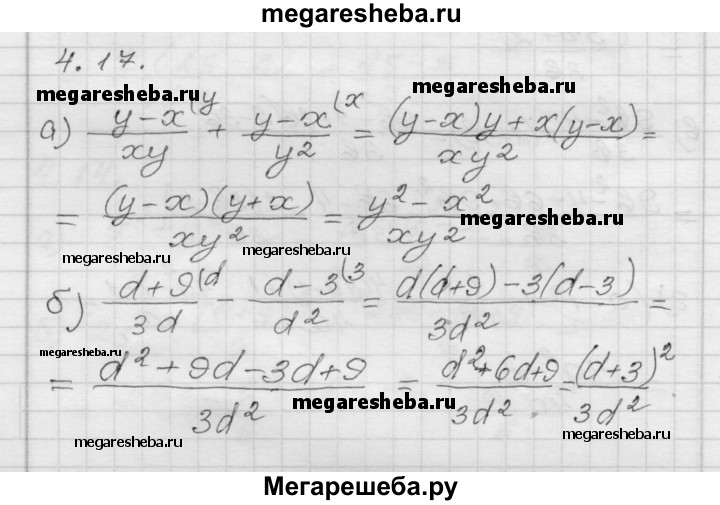 megaresheba.ru
4.17.
megaresheba.ru
megaresheba.ru
а) (y-x)/(xy) (y + (y-x)/(y²) (x = ((y-x)y + x(y-x))/(xy²) =
= ((y-x)(y+x))/(xy²) = (y²-x²)/(xy²)
megaresheba.ru
megaresheba.ru
megaresheba.ru
б) (d+9)/(3d) (d - (d-3)/(d²) (3 = (d(d+9)-3(d-3))/(3d²) =
megaresheba.ru
= (d²+9d-3d+9)/(3d²) = (d²+6d+9)/(3d²) = (d+3)²/(3d²)
megaresheba.ru
megaresheba.ru
megaresheba.ru
Мегарешеба.ру